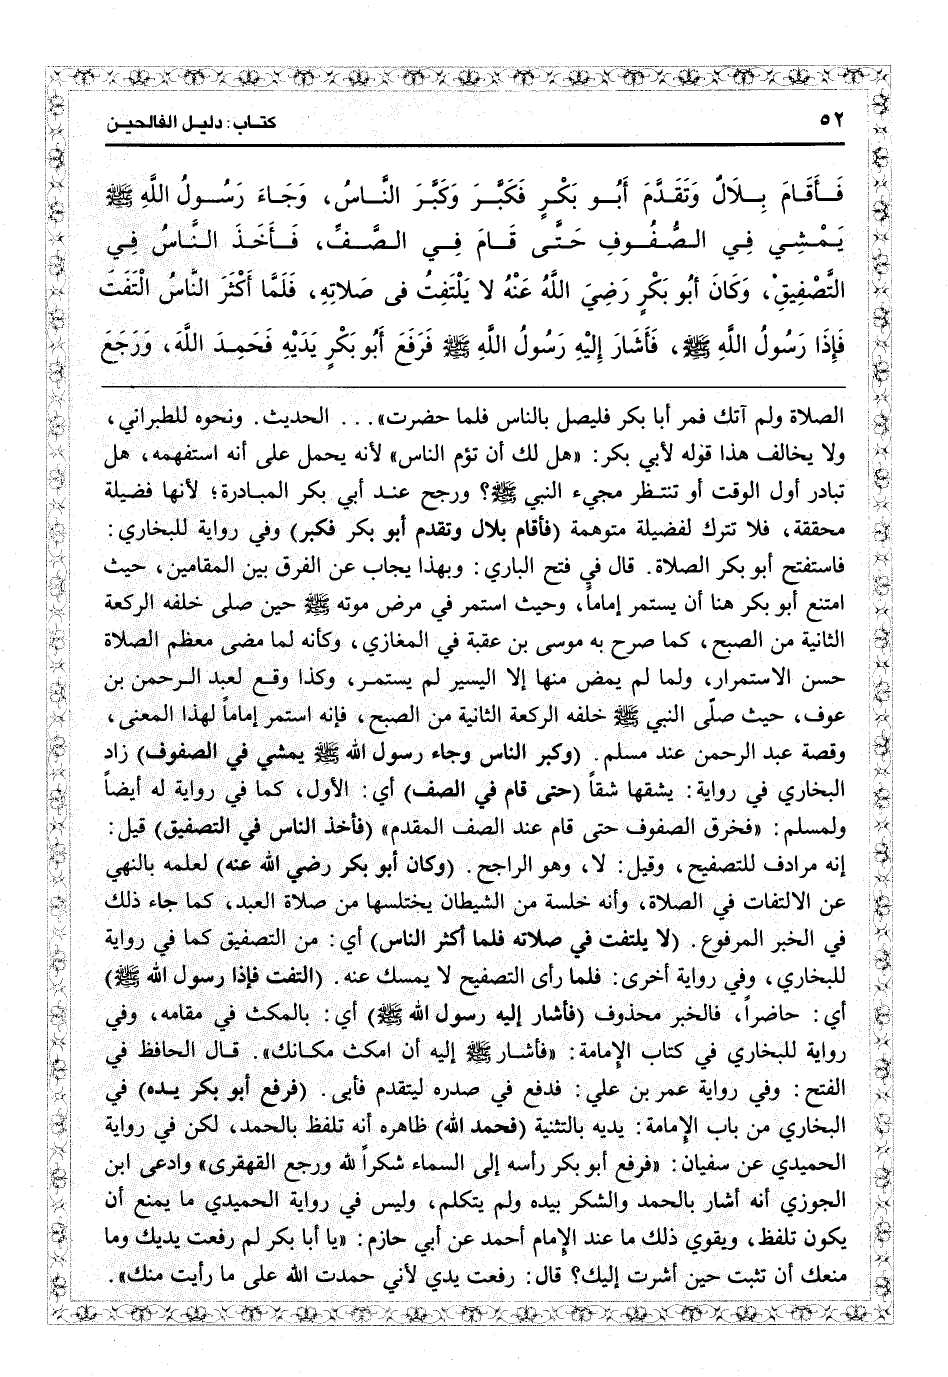 ٥٢
كتاب: دليل الفالحين
فَأَقَامَ بِلَالٌ وَتَقَدَّمَ أَبُو بَكْرٍ فَكَبَّرَ وَكَبَّرَ النَّاسُ، وَجَاءَ رَسُولُ اللَّهِ ﷺ
يَمْشِي فِي الصُّفُوفِ حَتَّى قَامَ فِي الصَّفِّ، فَأَخَذَ النَّاسُ فِي
التَّصْفِيقْ، وَكَانَ أَبُو بَكْرٍ رَضِيَ اللَّهُ عَنْهُ لا يَلْتَفِتُ فى صَلاتِهِ، فَلَمَّا أَكْثَرَ النَّاسُ الْتَفَتَ
فَإِذَا رَسُولُ اللَّهِ ﷺ، فَأَشَارَ إِلَيْهِ رَسُولُ اللَّهِ ﷺ فَرَفَعَ أَبُو بَكْرٍ يَدَيْهِ فَحَمِدَ اللَّهَ، وَرَجَعَ
الصلاة ولم آتك فمر أبا بكر فليصل بالناس فلما حضرت»... الحديث. ونحوه للطبراني،
ولا يخالف هذا قوله لأبي بكر: «هل لك أن تؤم الناس» لأنه يحمل على أنه استفهمه، هل
تبادر أول الوقت أو تنتظر مجيء النبي ﷺ؟ ورجح عند أبي بكر المبادرة؛ لأنها فضيلة
محققة، فلا تترك لفضيلة متوهمة (فأقام بلال وتقدم أبو بكر فكبر) وفي رواية للبخاري:
فاستفتح أبو بكر الصلاة. قال في فتح الباري: وبهذا يجاب عن الفرق بين المقامين، حيث
امتنع أبو بكر هنا أن يستمر إماماً، وحيث استمر في مرض موته ﷺ حين صلى خلفه الركعة
الثانية من الصبح، كما صرح به موسى بن عقبة في المغازي، وكأنه لما مضى معظم الصلاة
حسن الاستمرار، ولما لم يمض منها إلا اليسير لم يستمر، وكذا وقع لعبد الرحمن بن
عوف، حيث صلّى النبي ﷺ خلفه الركعة الثانية من الصبح، فإنه استمر إماماً لهذا المعنى،
وقصة عبد الرحمن عند مسلم. (وكبر الناس وجاء رسول الله ﷺ يمشي في الصفوف) زاد
البخاري في رواية: يشقها شقاً (حتى قام في الصف) أي: الأول، كما في رواية له أيضاً
ولمسلم: «فخرق الصفوف حتى قام عند الصف المقدم» (فأخذ الناس في التصفيق) قيل:
إنه مرادف للتصفيح، وقيل: لا، وهو الراجح. (وكان أبو بكر رضي الله عنه) لعلمه بالنهي
عن الالتفات في الصلاة، وأنه خلسة من الشيطان يختلسها من صلاة العبد، كما جاء ذلك
في الخبر المرفوع. (لا يلتفت في صلاته فلما أكثر الناس) أي: من التصفيق كما في رواية
للبخاري، وفي رواية أخرى: فلما رأى التصفيح لا يمسك عنه. (التفت فإذا رسول الله ﷺ)
أي: حاضراً، فالخبر محذوف (فأشار إليه رسول الله ﷺ) أي: بالمكث في مقامه، وفي
رواية للبخاري في كتاب الإمامة: «فأشار ﷺ إليه أن امكث مكانك». قال الحافظ في
الفتح: وفي رواية عمر بن علي: فدفع في صدره ليتقدم فأبى. (فرفع أبو بكر يده) في
البخاري من باب الإمامة: يديه بالتثنية (فحمد الله) ظاهره أنه تلفظ بالحمد، لكن في رواية
الحميدي عن سفيان: «فرفع أبو بكر رأسه إلى السماء شكراً لله ورجع القهقرى» وادعى ابن
الجوزي أنه أشار بالحمد والشكر بيده ولم يتكلم، وليس في رواية الحميدي ما يمنع أن
يكون تلفظ، ويقوي ذلك ما عند الإمام أحمد عن أبي حازم: «يا أبا بكر لم رفعت يديك وما
منعك أن تثبت حين أشرت إليك؟ قال: رفعت يدي لأني حمدت الله على ما رأيت منك».